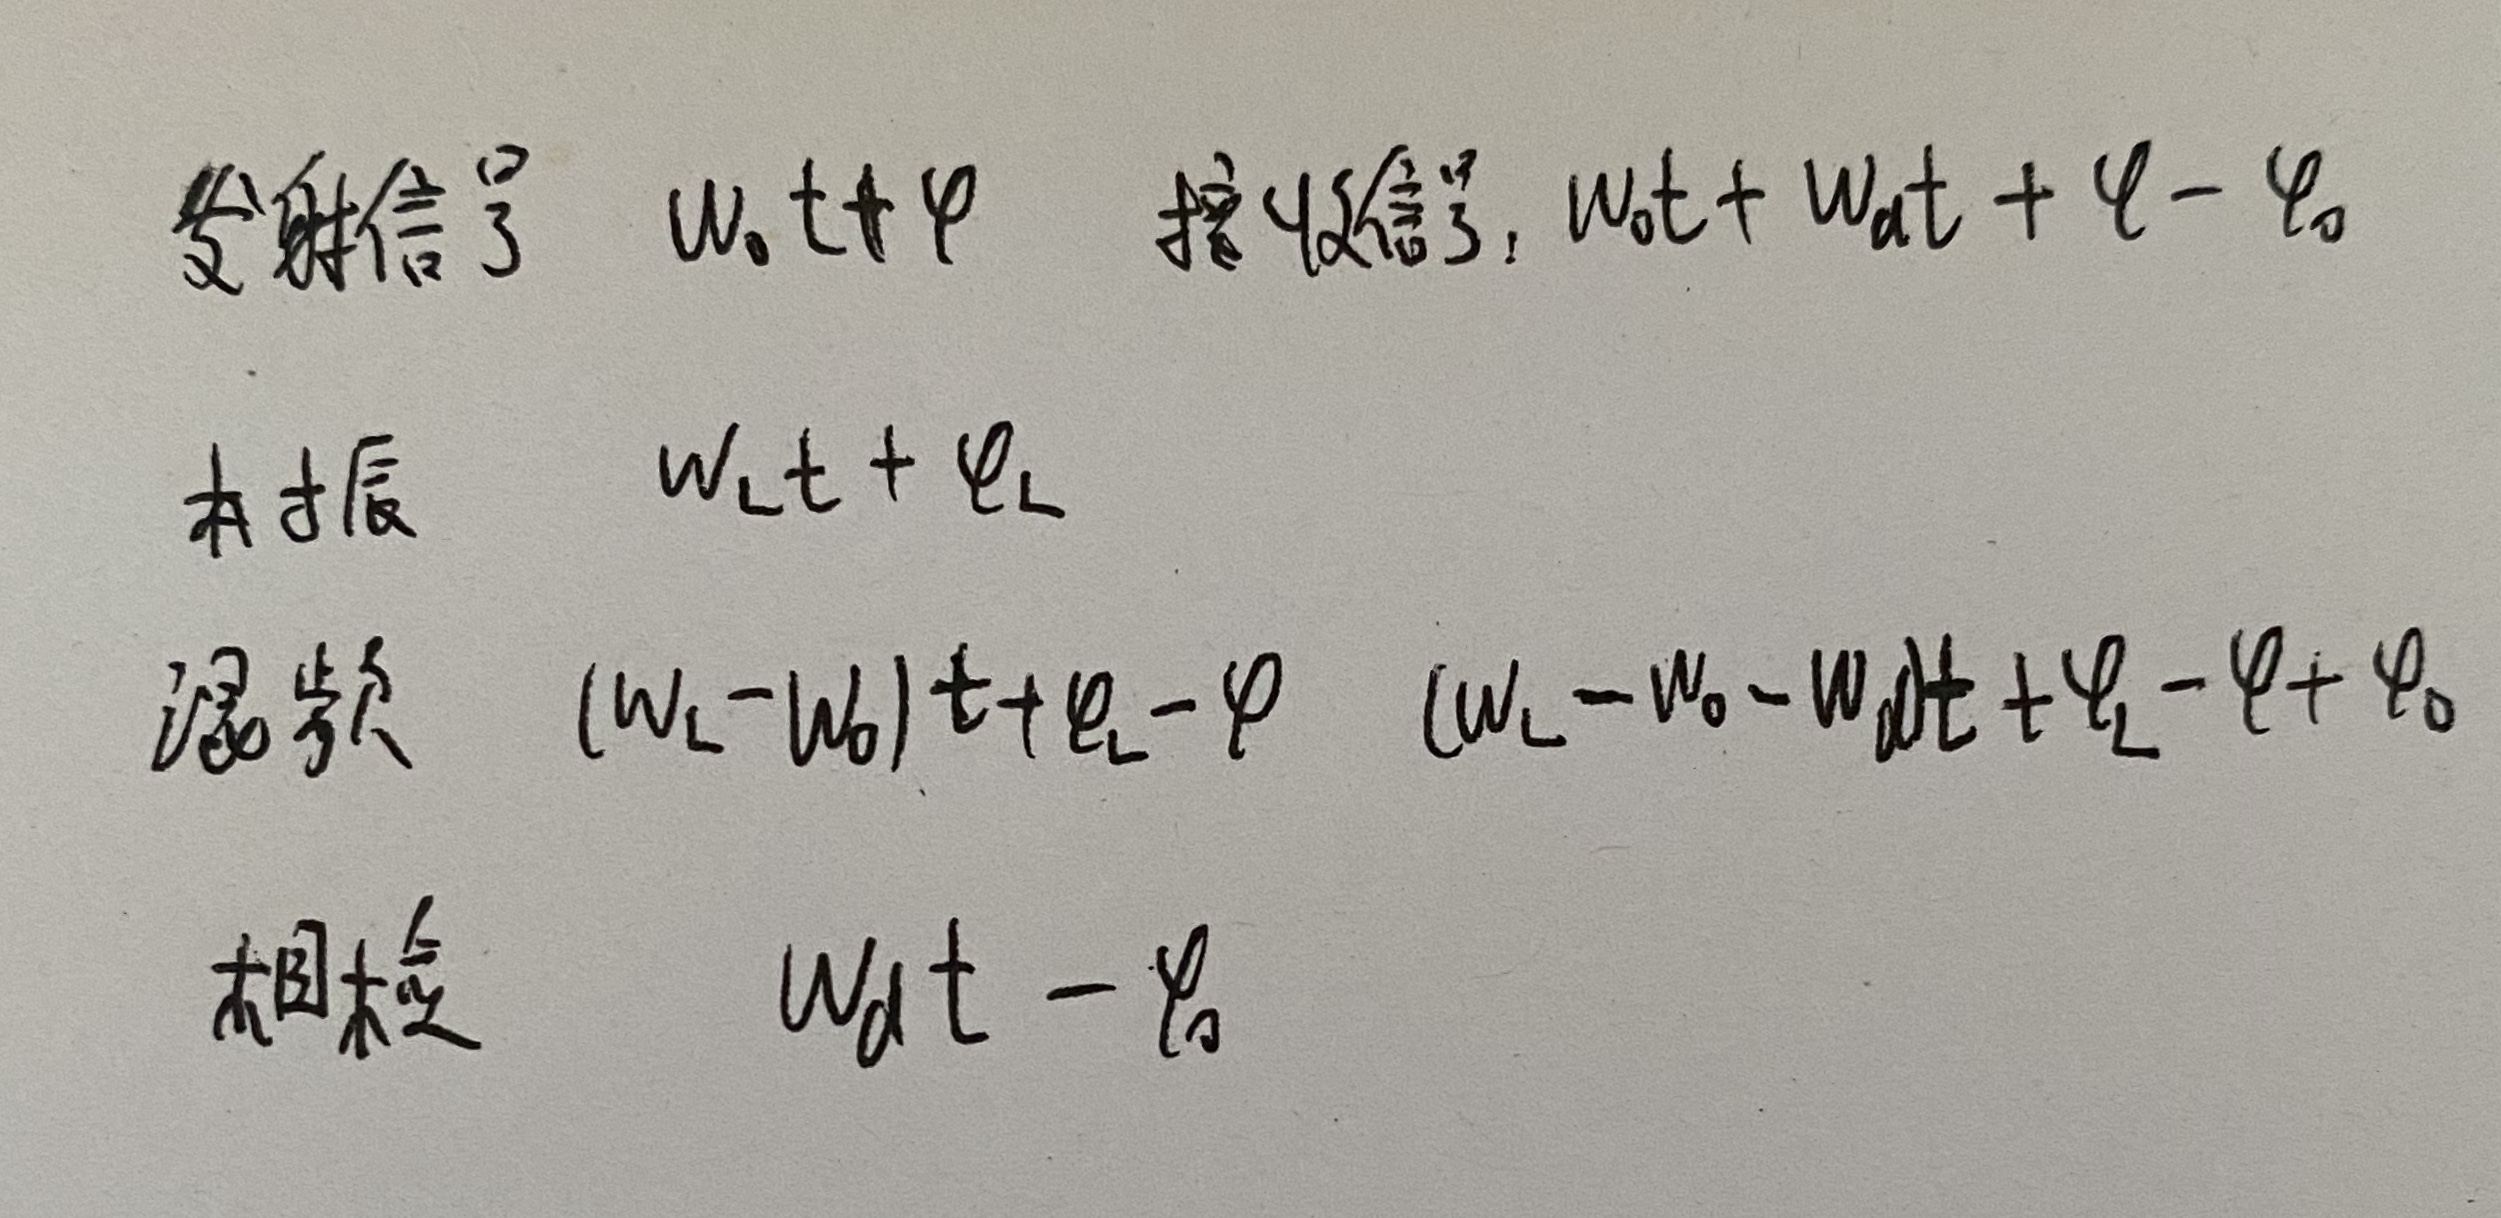 发射信号 W₀t+φ 接收信号: W₀t+Wdt+φ-φ₀
本振 WLt+φL
混频 (WL-W₀)t+φL-φ (WL-W₀-Wd)t+φL-φ+φ₀
相检 Wdt-φ₀